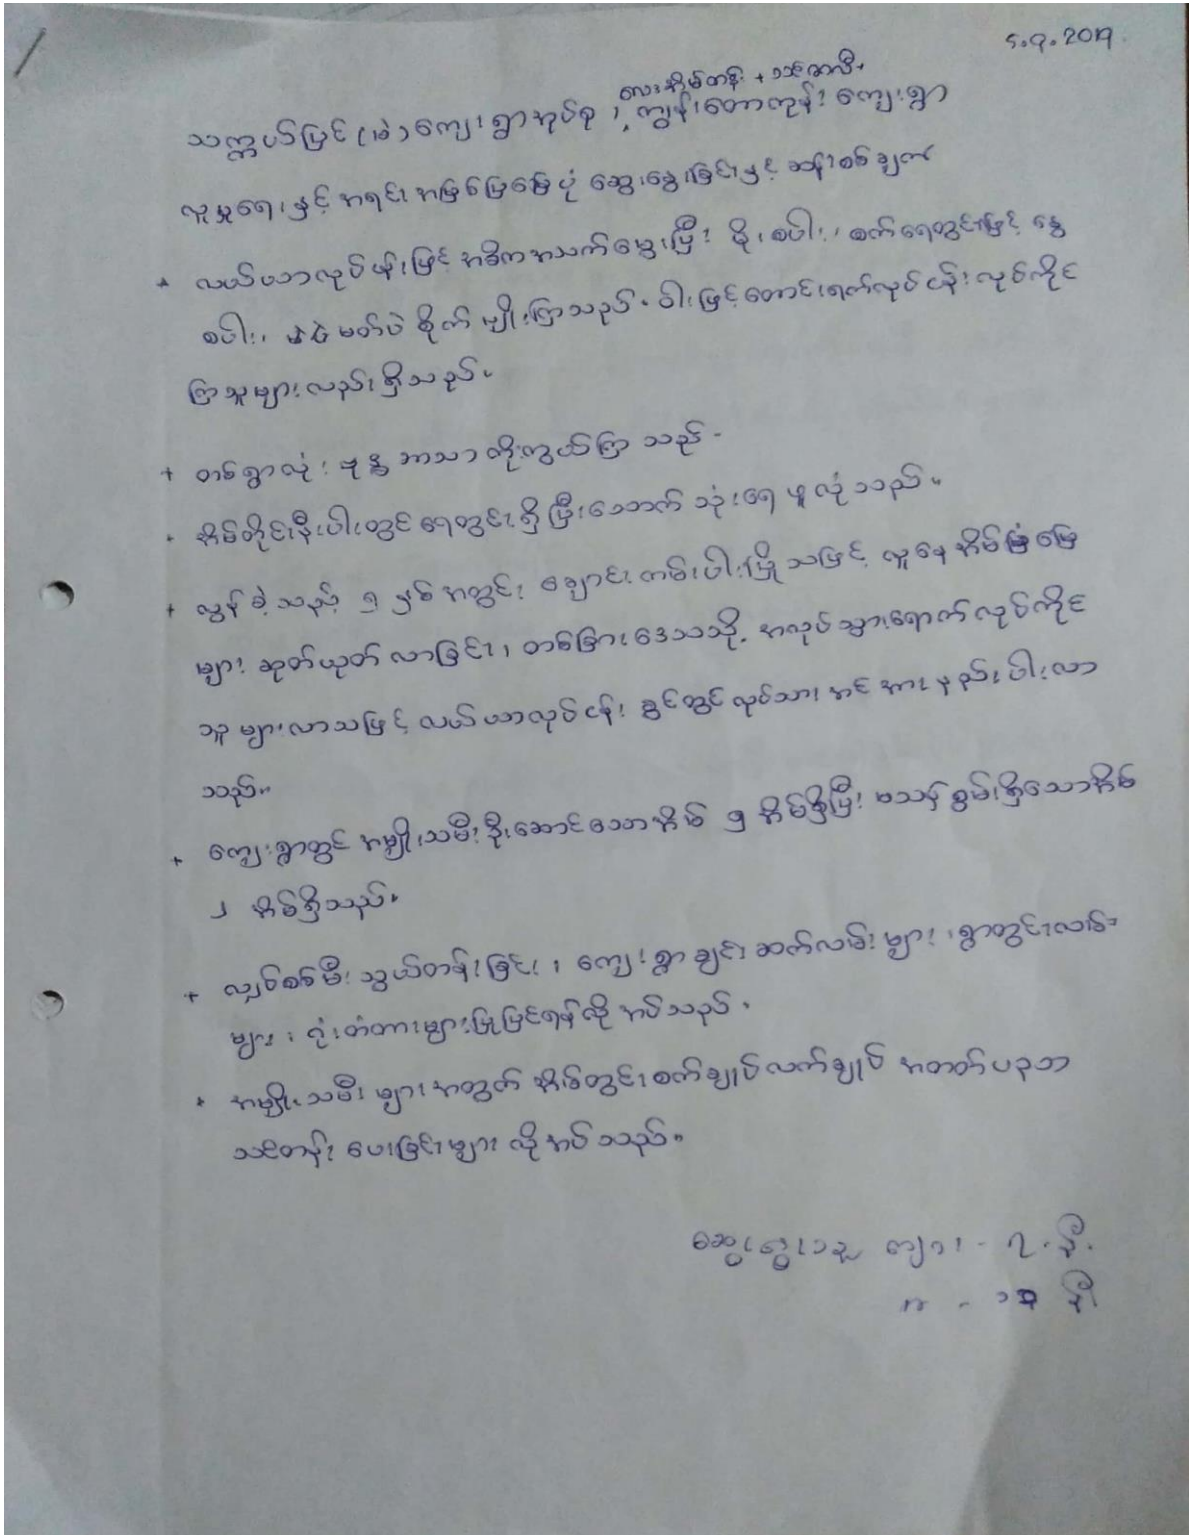 ၄.၇.2017
လေးအိမ်တန်း + သင်္ဘောလီ+
သက္ကယ်ပြင် (ခဲ) ကျေးရွာအုပ်စု ၊ ကျွန်းတောကုန်း ကျေးရွာ
လူမှုရေးနှင့် အရင်း အမြစ်မြေပြေပုံ ဆွေးနွေးခြင်းနှင့် ဆန်းစစ်ချက်
+ လယ်ယာလုပ်ငန်းဖြင့် အဓိကအသက်မွေးပြီး မိုးစပါး၊ စက်ရေတွင်းဖြင့် နွေ
စပါး၊ မတ်ပဲ စိုက်မျိုးကြသည်။ ဝါးဖြင့်တောင်းရက်လုပ်ငန်း လုပ်ကိုင်
ကြသူများလည်းရှိသည်။
+ တစ်ရွာလုံး ဗုဒ္ဓဘာသာ ကိုးကွယ်ကြ သည်။
+ အိမ်တိုင်းနီးပါးတွင် ရေတွင်းရှိပြီးသောက် သုံးရေ မူလုံသည်။
+ လွန်ခဲ့သည့် ၅ နှစ်အတွင်း ချောင်းကမ်းပါးပြိုသဖြင့် လူနေအိမ်ခြံမြေ
များ ဆုတ်ယုတ်လာခြင်း၊ တစ်ခြားဒေသသို့ အလုပ်သွားရောက်လုပ်ကိုင်
သူများလာသဖြင့် လယ်ယာလုပ်ငန်း ခွင်တွင် လုပ်သားအင်အားနည်းပါးလာ
သည်။
+ ကျေးရွာတွင် အမျိုးသမီးဦးဆောင်သောအိမ် ၅ အိမ်ရှိပြီး မသန်စွမ်းရှိသောအိမ်
၂ အိမ်ရှိသည်။
+ လျှပ်စစ်မီး သွယ်တန်းခြင်း၊ ကျေးရွာချင်းဆက်လမ်းများ၊ ရွာတွင်းလမ်း
များ၊ ဂုံးတံတားများပြုပြင်ရန်လိုအပ်သည်။
+ အမျိုးသမီးများအတွက် အိမ်တွင်းစက်ချုပ်လက်ချုပ် အတတ်ပညာ
သင်တန်း ပေးခြင်းများ လိုအပ်သည်။
ဆွေးနွေးသူ ကျား - ၇.ဦး
မ - ၁၃ ဦး